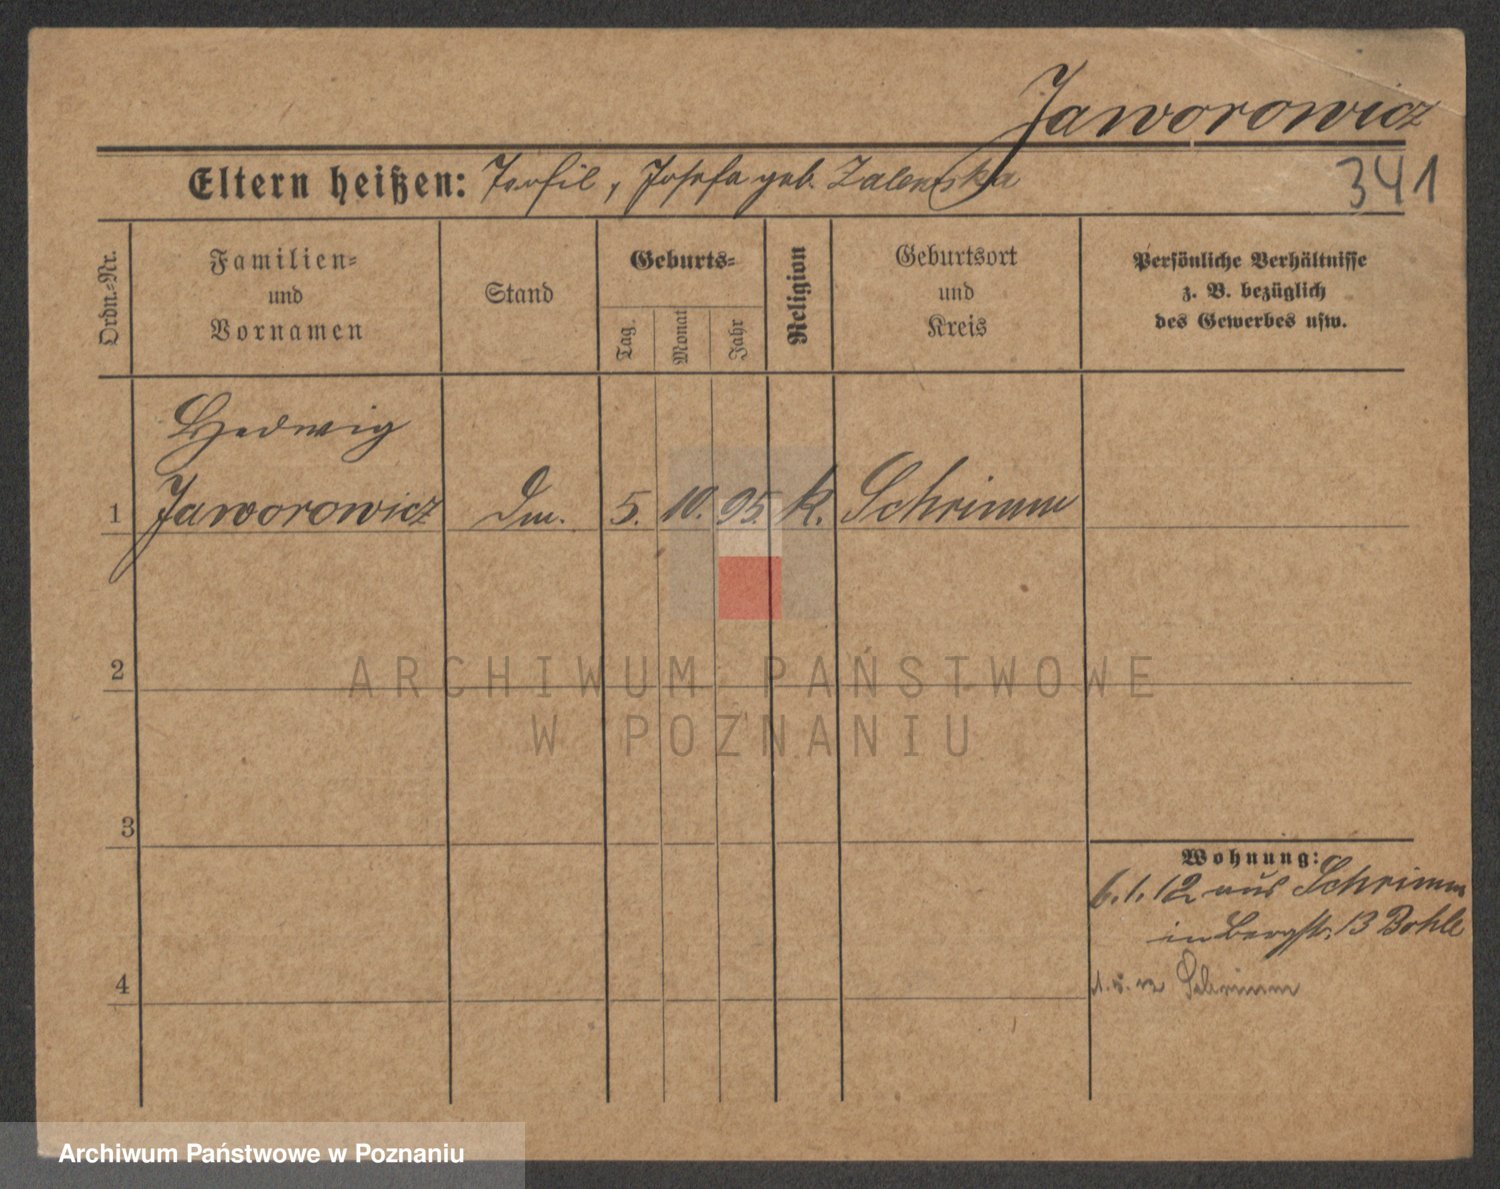 Jaworowicz
Eltern heißen: Teofil, Josefa geb. Zalewska
341
Ordn.-Nr.
Familien-
und
Vornamen
Stand
Geburts-
Tag.
Monat
Jahr
Religion
Geburtsort
und
Kreis
Persönliche Verhältnisse
z. B. bezüglich
des Gewerbes usw.
Hedwig
1 Jaworowicz Dm. 5. 10. 95. k. Schrimm
2
3
4
Wohnung:
6.1.12 aus Schrimm
in Bergstr. 13 Bohle
Schrimm
ARCHIWUM PAŃSTWOWE
W POZNANIU
Archiwum Państwowe w Poznaniu